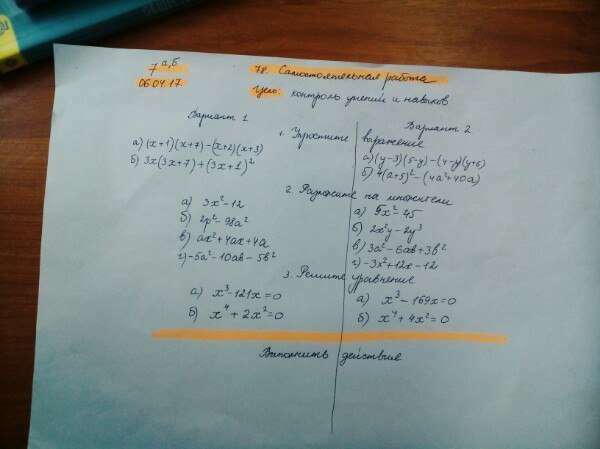 7 а,б
78. Самостоятельная работа
06.04.17
Цель: контроль умений и навыков
Вариант 1
Вариант 2
1. Упростите выражение
а) (x+1)(x+7)-(x+2)(x+3)
б) 3x(3x+7)+(3x+1)²
а) (y-3)(5-y)-(4-y)(y+6)
б) 4(a+5)²-(4a²+40a)
2. Разложите на множители
а) 3x²-12
б) 2p²-98a²
в) ax²+4ax+4a
г) -5a²-10ab-5b²
а) 5x²-45
б) 2x²y-2y³
в) 3a²-6ab+3b²
г) -3x²+12x-12
3. Решите уравнение
а) x³-121x=0
б) x⁴+2x²=0
а) x³-169x=0
б) x⁴+4x²=0
Выполнить действие